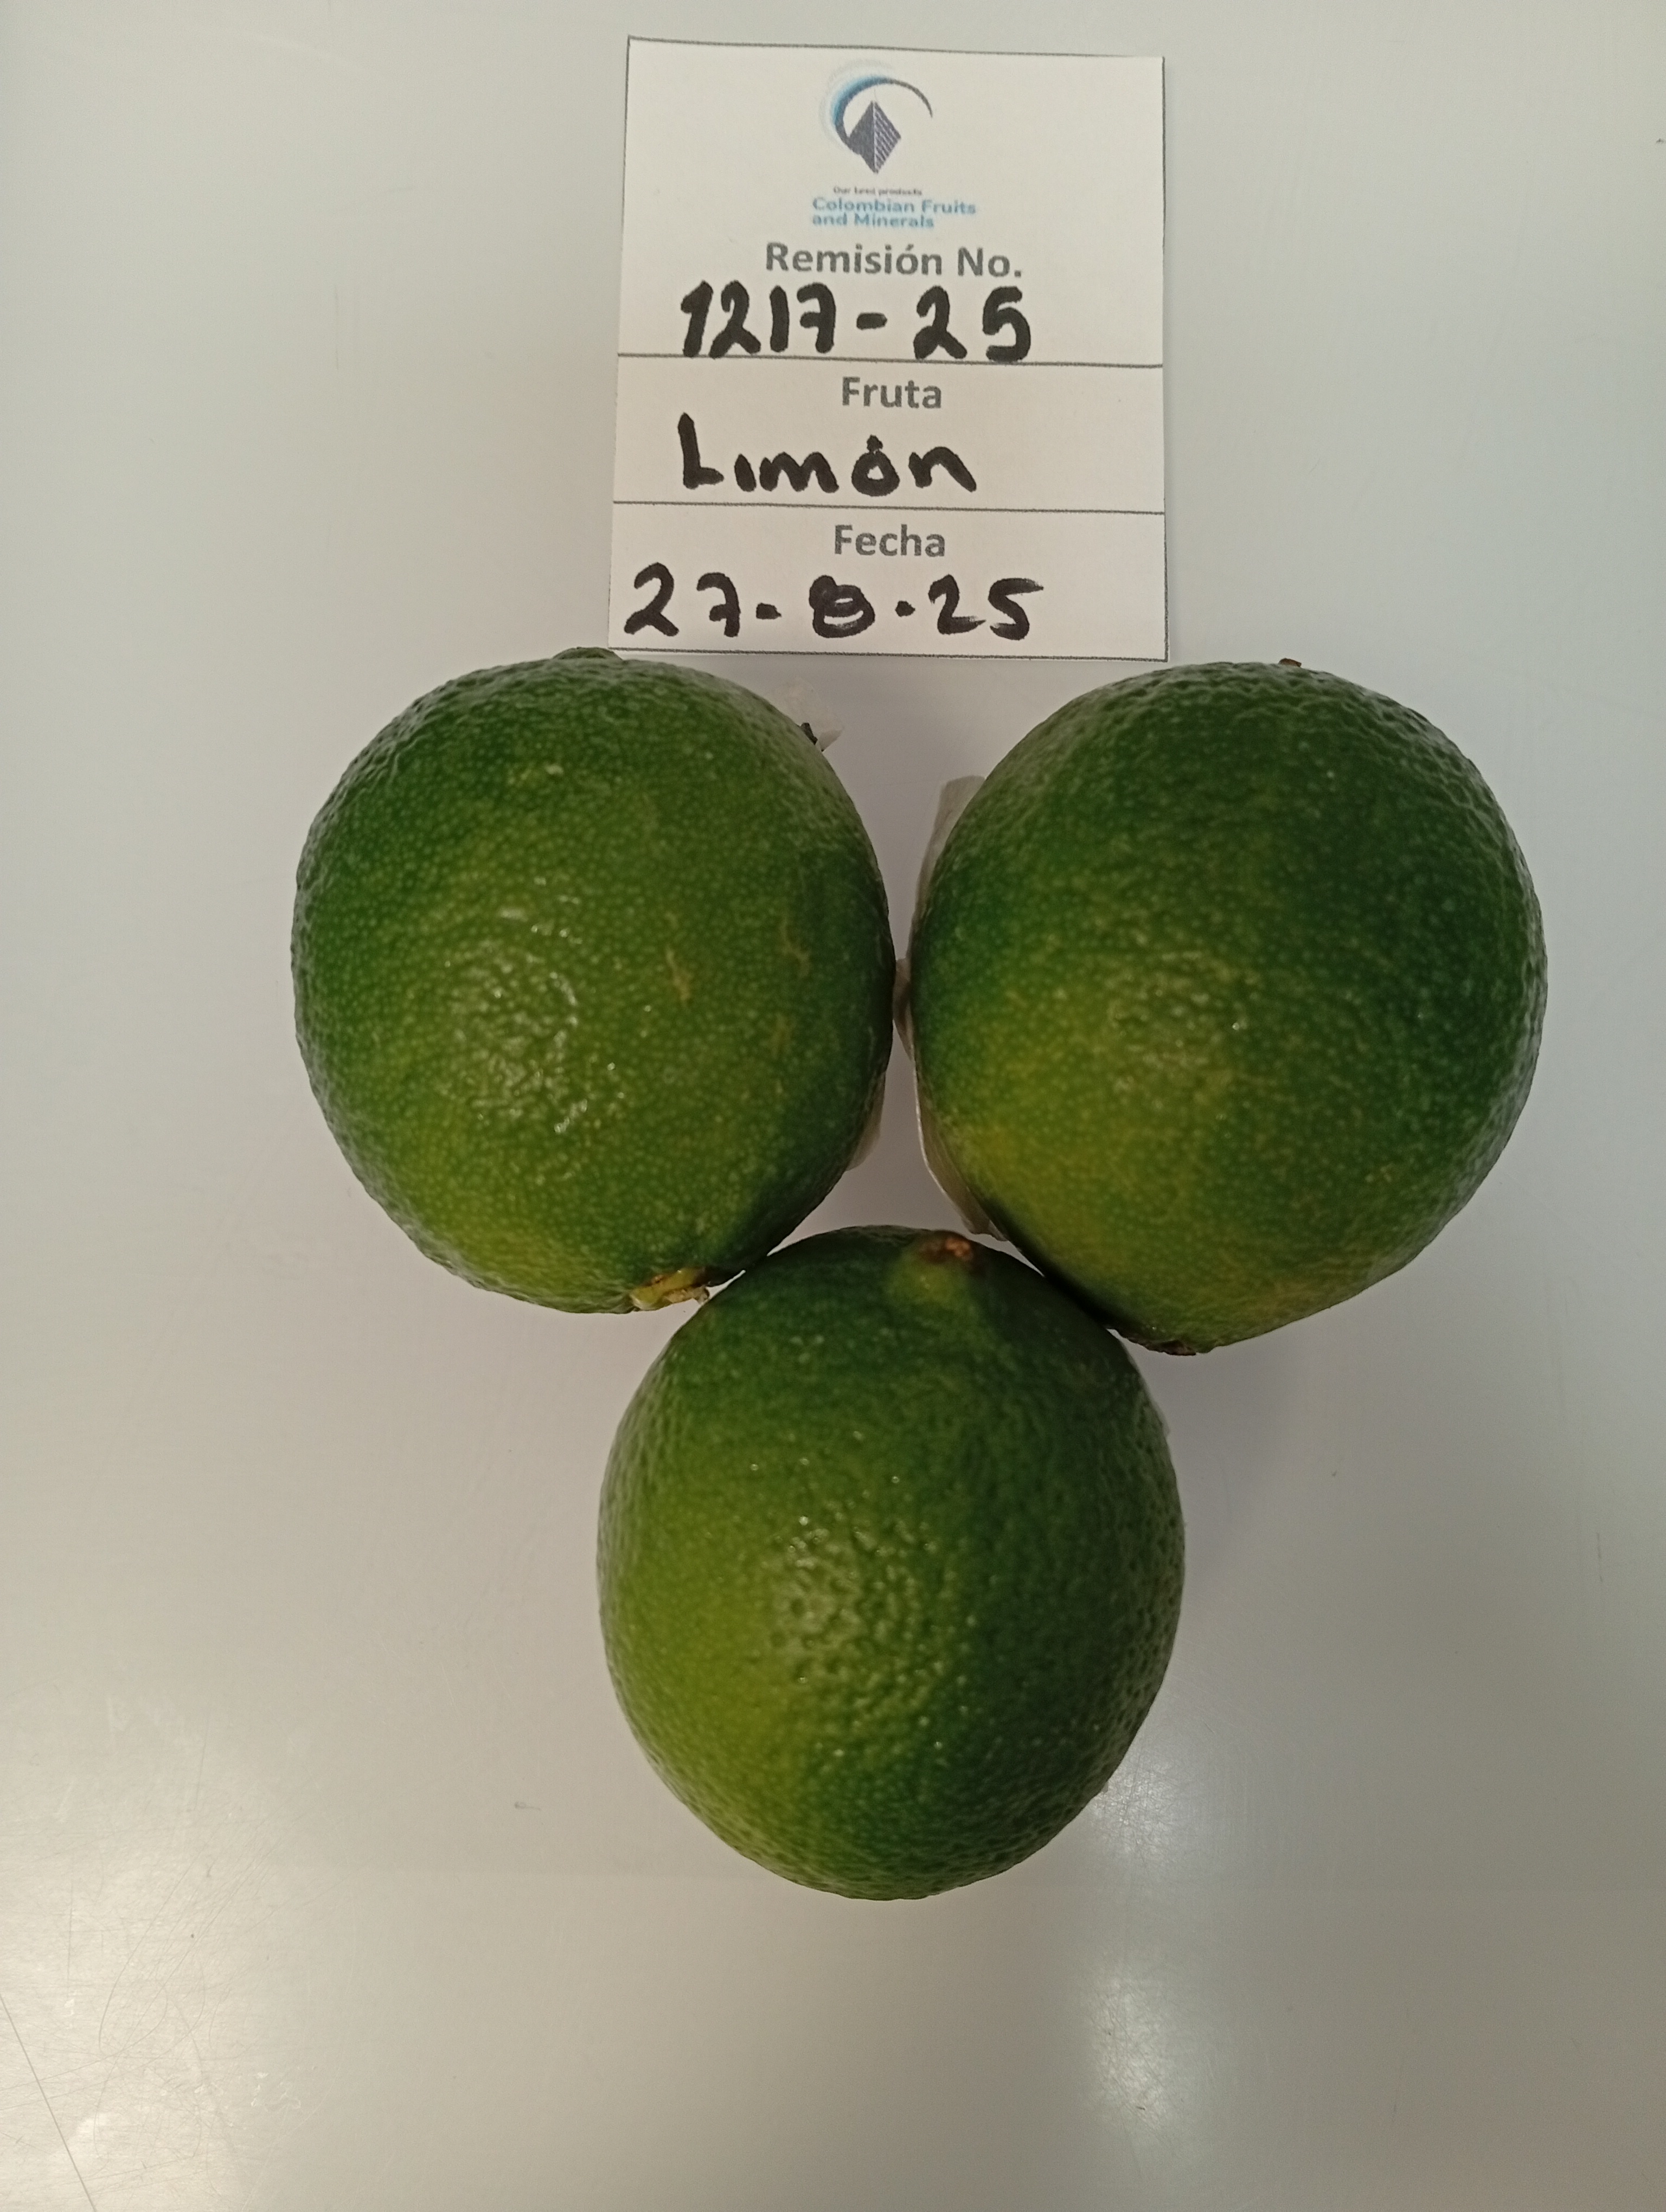 Our best products
Colombian Fruits
and Minerals
Remisión No.
1217-25
Fruta
Limón
Fecha
27-8-25